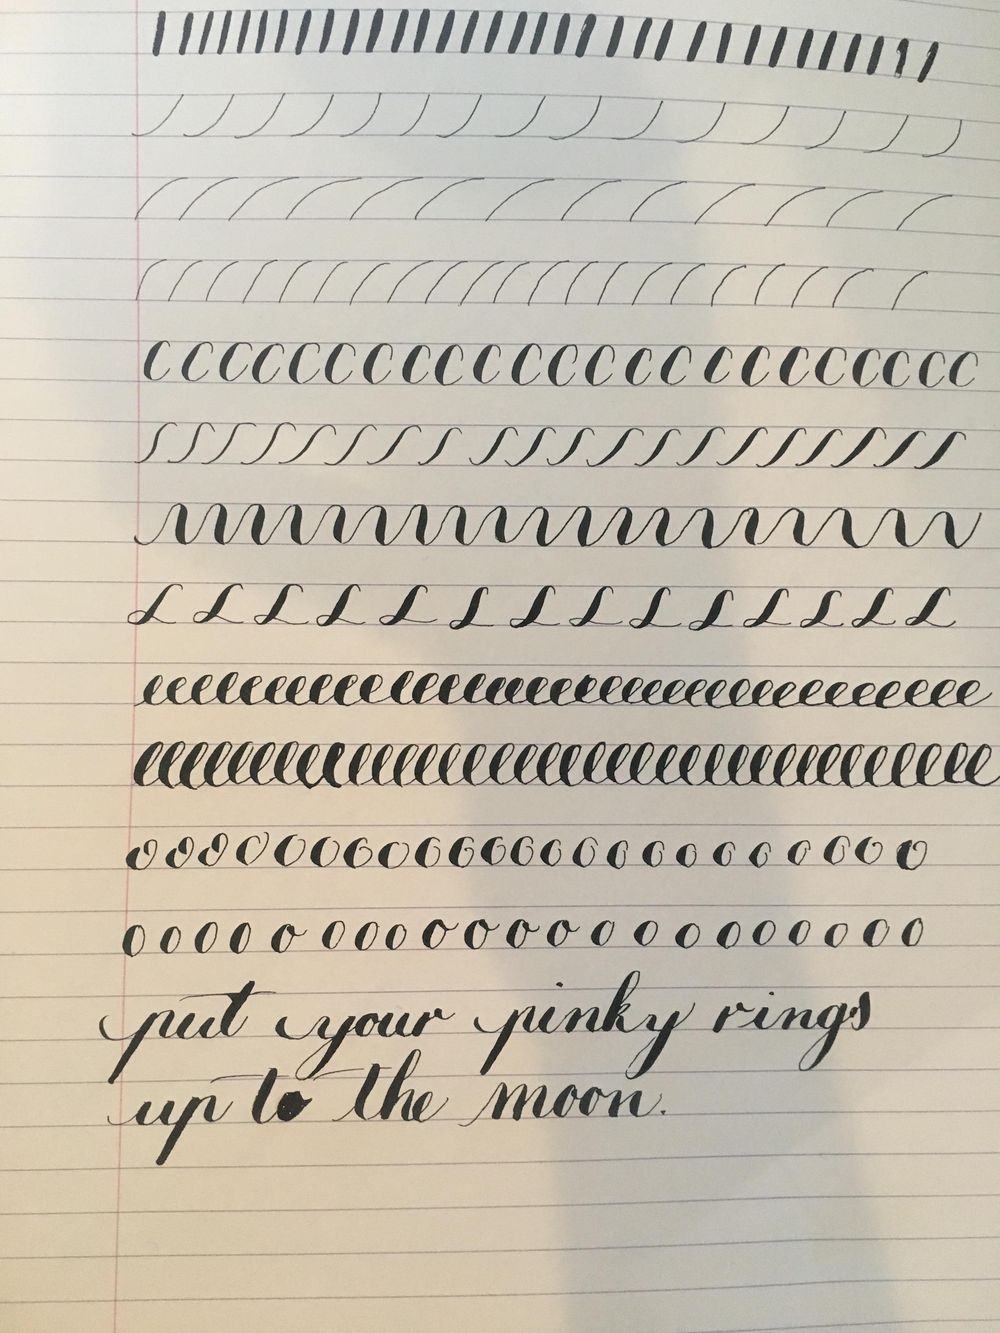 put your pinky rings
up to the moon.